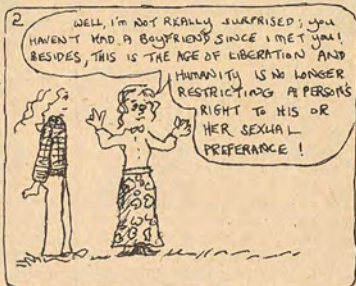 2
WELL, I'M NOT REALLY SURPRISED; YOU
HAVEN'T HAD A BOYFRIEND SINCE I MET YOU!
BESIDES, THIS IS THE AGE OF LIBERATION AND
HUMANITY IS NO LONGER
RESTRICTING A PERSON'S
RIGHT TO HIS OR
HER SEXUAL
PREFERANCE !